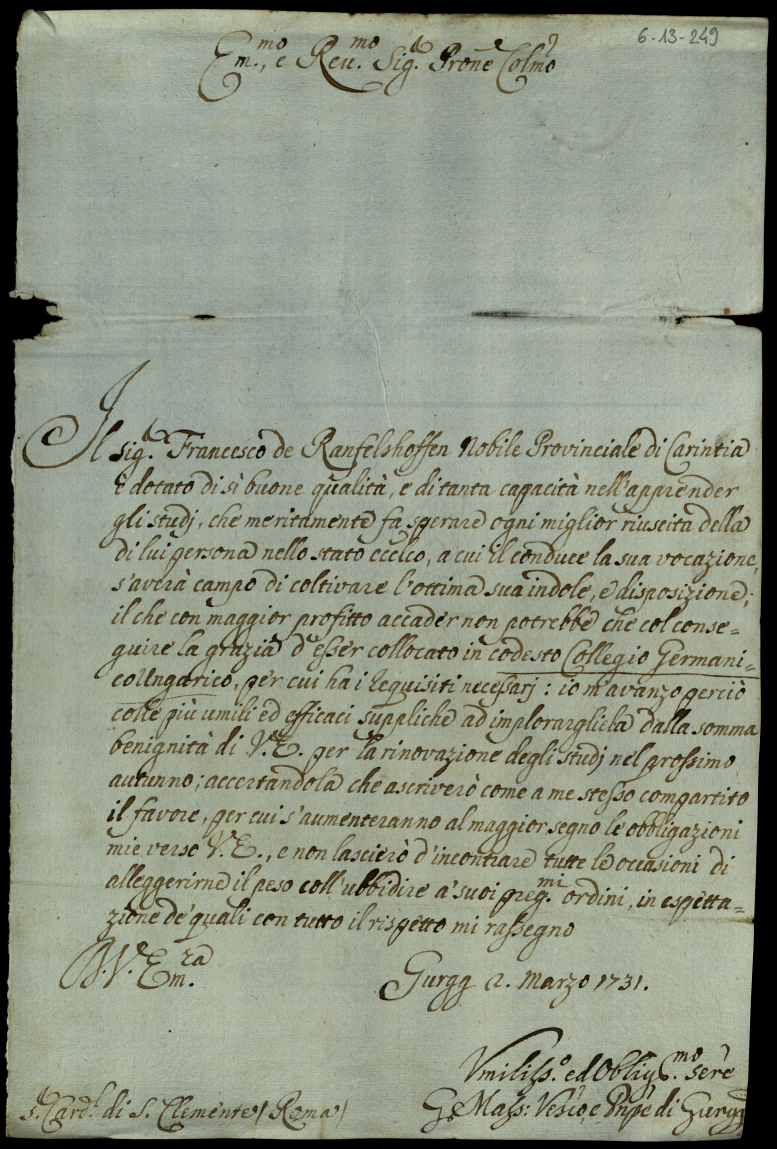 6-13-249
Em.mo, e Reu.mo Sig.r Prone Colmo
Il sig.r Francesco de Ranfelshoffen Nobile Provinciale di Carintia
è dotato di sì buone qualità, e di tanta capacità nell'apprender
gli studj, che meritamente fa sperare ogni miglior riuscita della
di lui persona nello stato eccl.co, a cui il conduce la sua vocazione,
s'averà campo di coltivare l'ottima sua indole, e disposizione;
il che con maggior profitto accader non potrebbe che col conse=
guire la grazia d'esser collocato in codesto Collegio Germani=
coUngarico, per cui ha i requisiti necessarj: io m'avanzo perciò
colle più umili ed efficaci suppliche ad implorargliela dalla somma
benignità di V.E. per la rinovazione degli studj nel prossimo
autunno; accertandola che ascriverò come a me stesso compartito
il favore, per cui s'aumenteranno al maggior segno le obbligazioni
mie verso V.E., e non lascierò d'incontrare tutte le occasioni di
alleggerirne il peso coll'ubbidire a' suoi preg.mi ordini, in espetta=
zione de' quali con tutto il rispetto mi rassegno
V. Em.za
Gurgg 2. Marzo 1731.
Vmiliss.o ed Oblig.mo sere
G. Mass: Vesco, e Pnpe di Gurgg
s.r Card.l di S. Clemente / Roma /